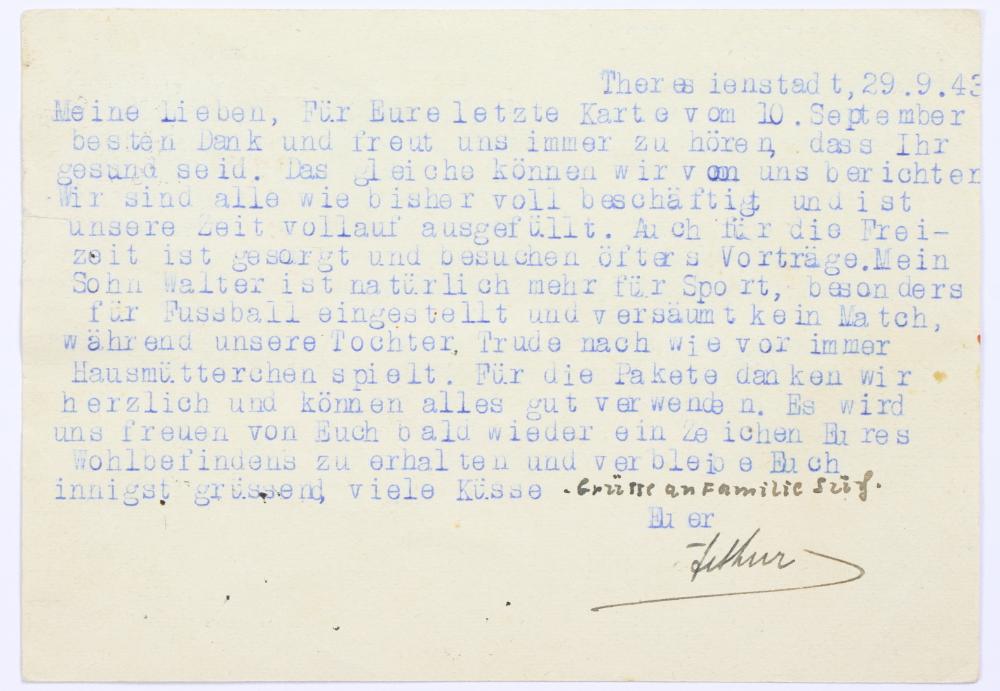 Theresienstadt, 29.9.43
Meine Lieben, Für Eure letzte Karte vom 10. September
besten Dank und freut uns immer zu hören, dass Ihr
gesund seid. Das gleiche können wir von uns berichten
Wir sind alle wie bisher voll beschäftigt und ist
unsere Zeit vollauf ausgefüllt. Auch für die Frei-
zeit ist gesorgt und besuchen öfters Vorträge. Mein
Sohn Walter ist natürlich mehr für Sport, besonders
für Fussball eingestellt und versäumt kein Match,
während unsere Tochter, Trude nach wie vor immer
Hausmütterchen spielt. Für die Pakete danken wir
herzlich und können alles gut verwenden. Es wird
uns freuen von Euch bald wieder ein Zeichen Eures
Wohlbefindens zu erhalten und verbleibe Euch
innigst grüssend, viele Küsse. Grüsse an Familie
Euer
Arthur